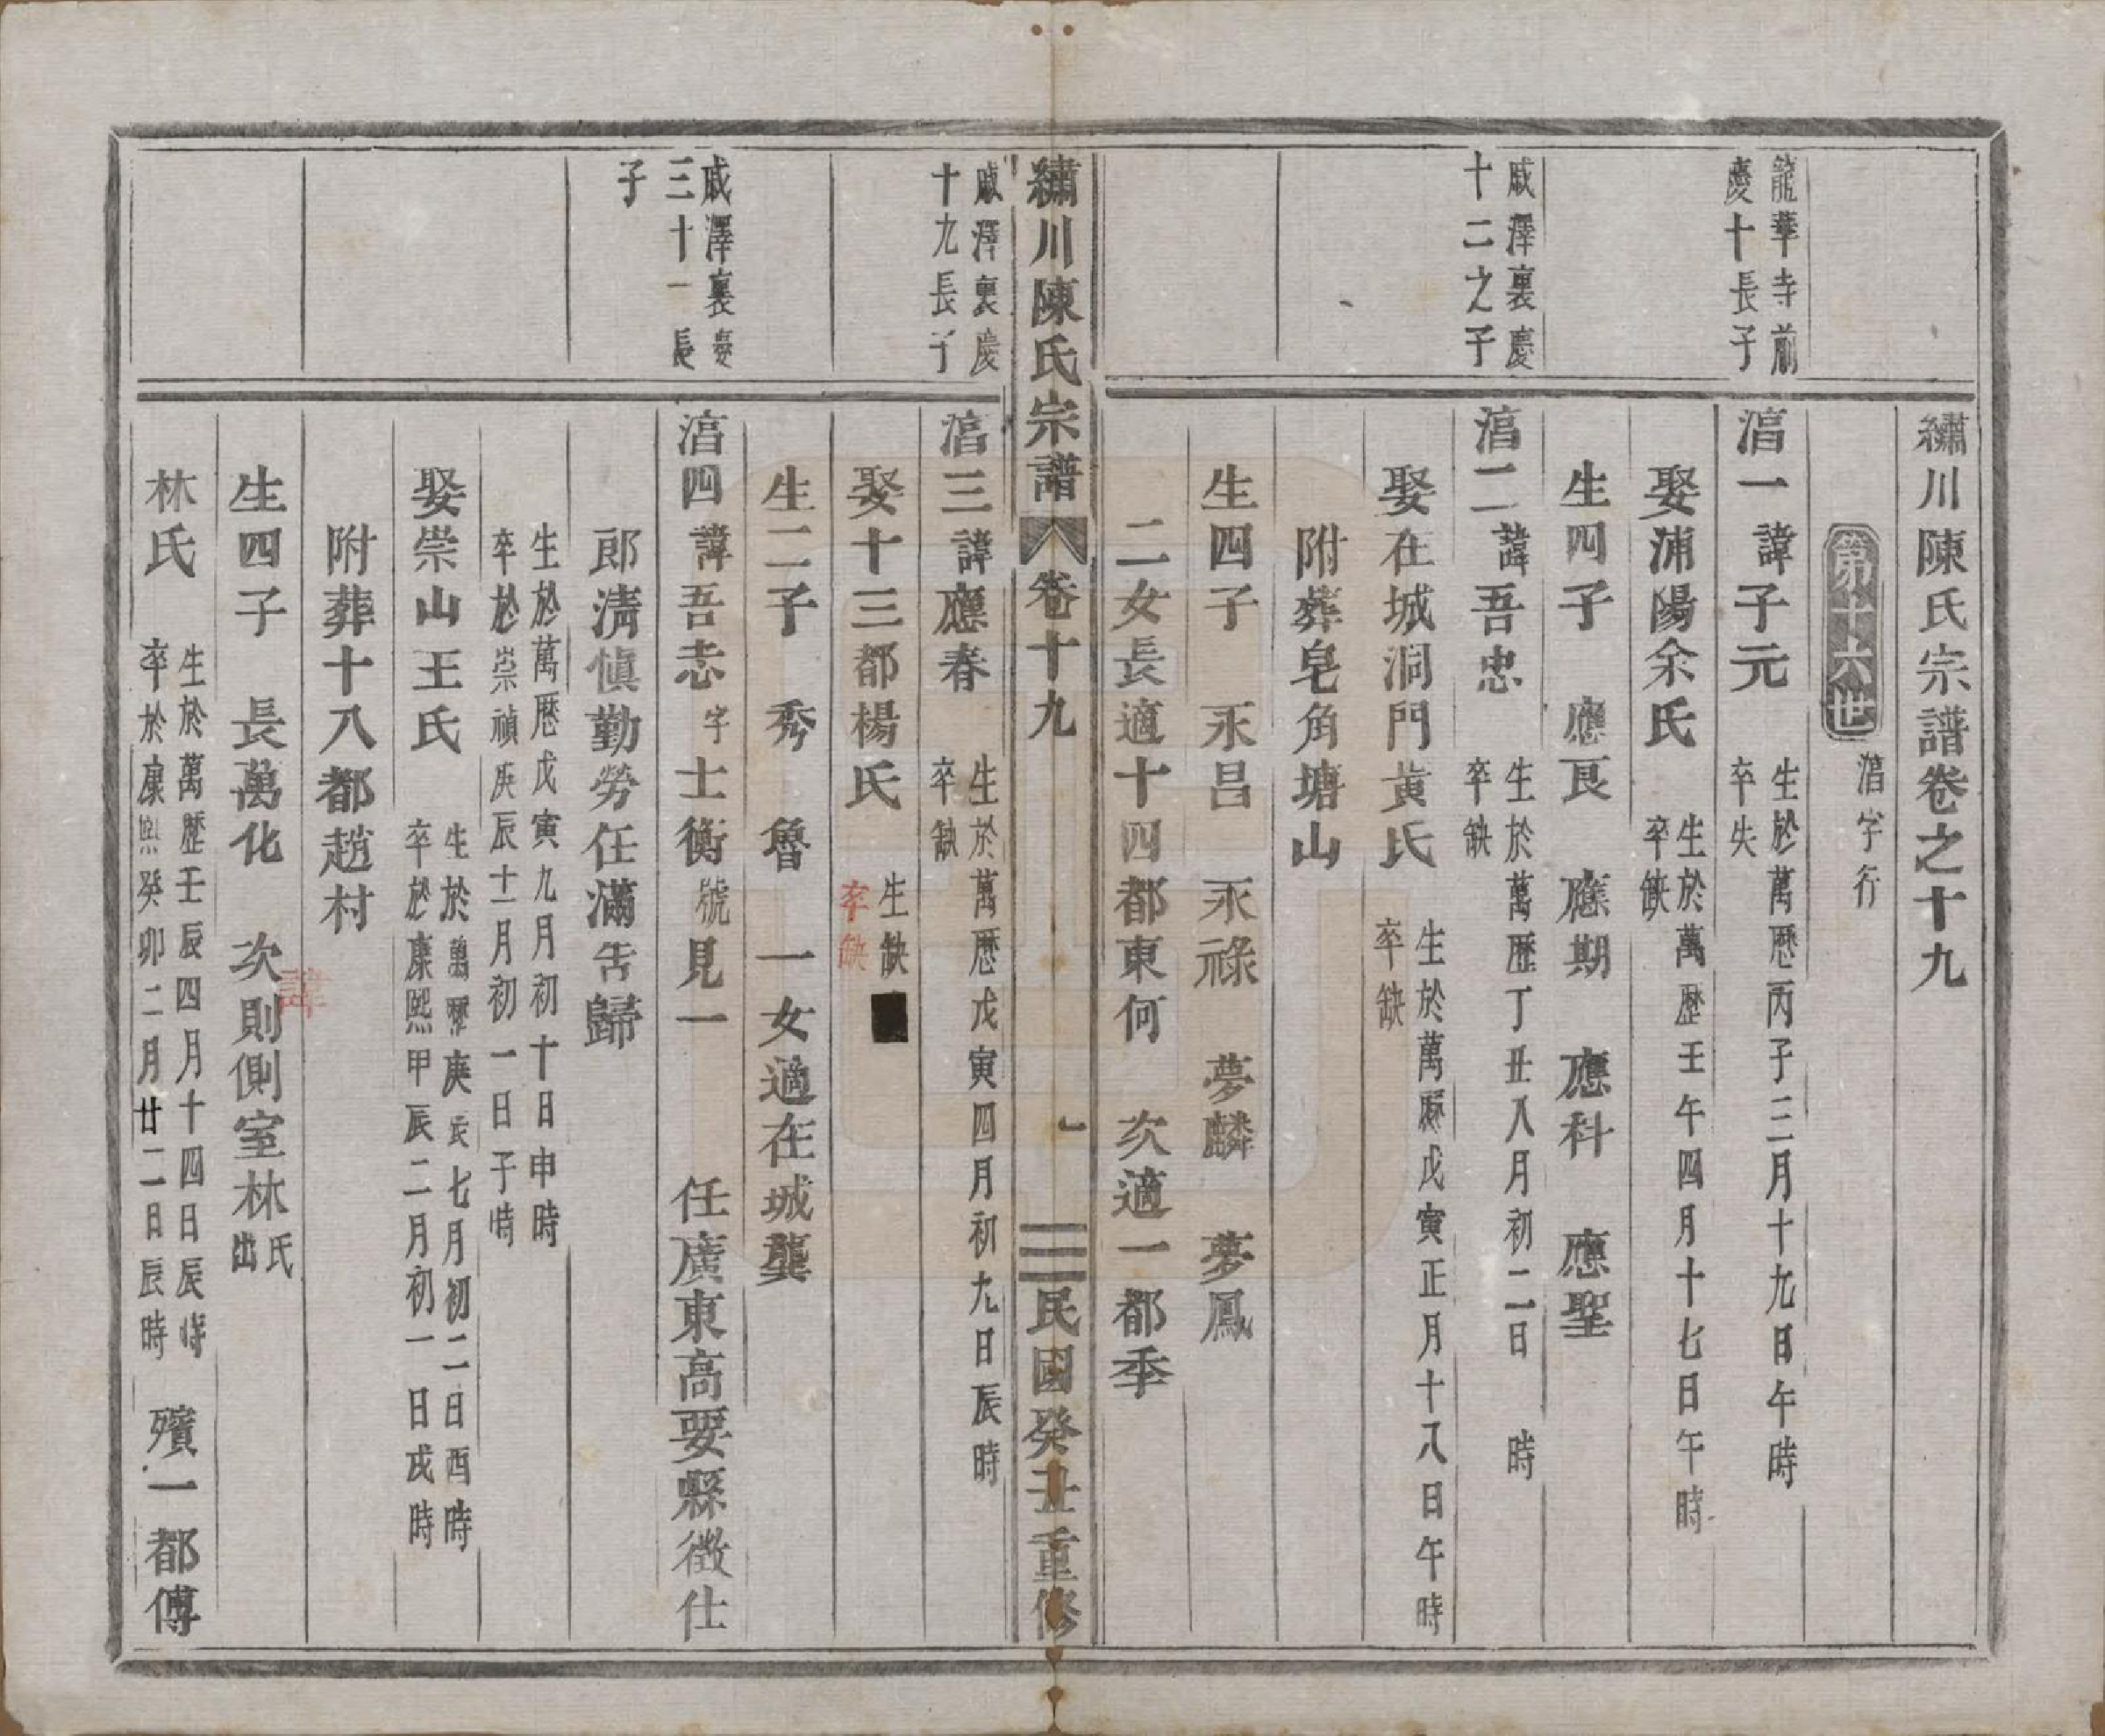 繡川陳氏宗譜卷之十九
第十六世 湻字行
龍華寺前
慶十長子
湻一 諱子元 生於萬厯丙子三月十九日午時
卒失
娶浦陽余氏 生於萬歷壬午四月十七日午時
卒缺
生四子 應良 應期 應科 應聖
戚澤裏慶
十二之子
湻二 諱吾忠 生於萬歷丁丑八月初二日 時
卒缺
娶在城洞門黃氏 生於萬厯戊寅正月十八日午時
卒缺
附葬皂角塘山
生四子 永昌 永祿 夢麟 夢鳳
二女長適十四都東何 次適一都季
繡川陳氏宗譜 卷十九 一 民國癸丑重修
戚澤裏慶
十九長子
湻三 諱應春 生於萬厯戊寅四月初九日辰時
卒缺
娶十三都楊氏 生缺
卒缺
生二子 秀 魯 一女適在城龔
戚澤裏慶
三十一長
子
湻四 諱吾志 字士衡 號見一 任廣東高要縣徵仕
郎淸愼勤勞任滿吿歸
生於萬厯戊寅九月初十日申時
卒於崇禎庚辰十一月初一日子時
娶崇山王氏 生於萬歷庚辰七月初二日酉時
卒於康熙甲辰二月初一日戌時
附葬十八都趙村
生四子 長萬化 次則側室林氏出
諱
林氏 生於萬歷壬辰四月十四日辰時
卒於康熙癸卯二月廿二日辰時 殯一都傅